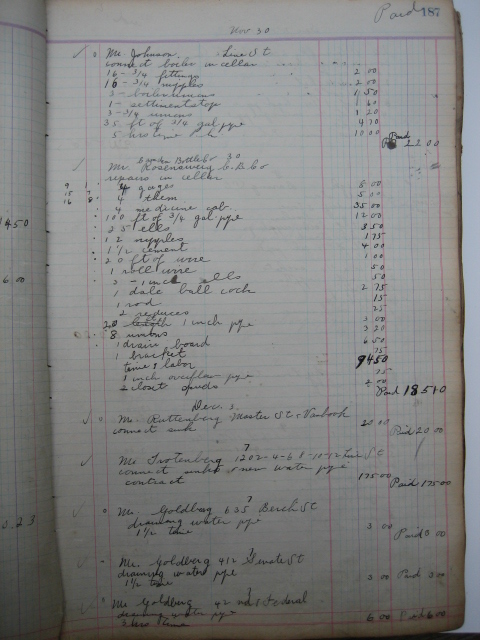 Paid 187
Nov 30
Mr Johnson Line St
connect boiler in cellar
16 - 3/4 fittings 2 00
16 - 3/4 nipples 2 00
3 - boiler unions 1 50
1 - settiment stop 1 60
3 - 3/4 unions 1 20
35 ft of 3/4 gal pipe 4 70
5 hrs time 10 00
Paid 22 00
Camden Bottle Co 30
Mr Rosenswerg
repairs in cellar
4 gages 6 00
4 them 5 00
4 medicine cab. 35 00
100 ft of 3/4 gal pipe 12 00
25 ells 3 50
12 nipples 1 75
1 1/2 cement 4 00
20 ft of wire 1 00
1 roll wire 50
3 - 1 inch ells 50
1 dale ball cock 2 75
1 rod 15
2 reduces 25
20 length 1 inch pipe 3 00
8 unions 3 20
1 drain board 6 50
1 bracket 75
time & labor 94 50
1 inch overflow pipe 75
2 closet spuds 2 00
Paid 185 10
Dec 3
Mr Ruttenberg Master St & Vanhook
connect sink 20 00
Paid 20 00
7
Mr Trotenberg 1202-4-6 8-10-12 Line St
connect sinks & new water pipe
contract 175 00
Paid 175 00
7
Mr Goldberg 635 Berch St
draining water pipe
1 1/2 time 3 00
Paid 3 00
Mr Goldberg 412 Senate St
draining water pipe
1 1/2 time 3 00 Paid 3 00
Mr Goldberg 42 nd & Federal
draining water pipe
2 hrs time 6 00 Paid 6 00
1450
6 00
3.23